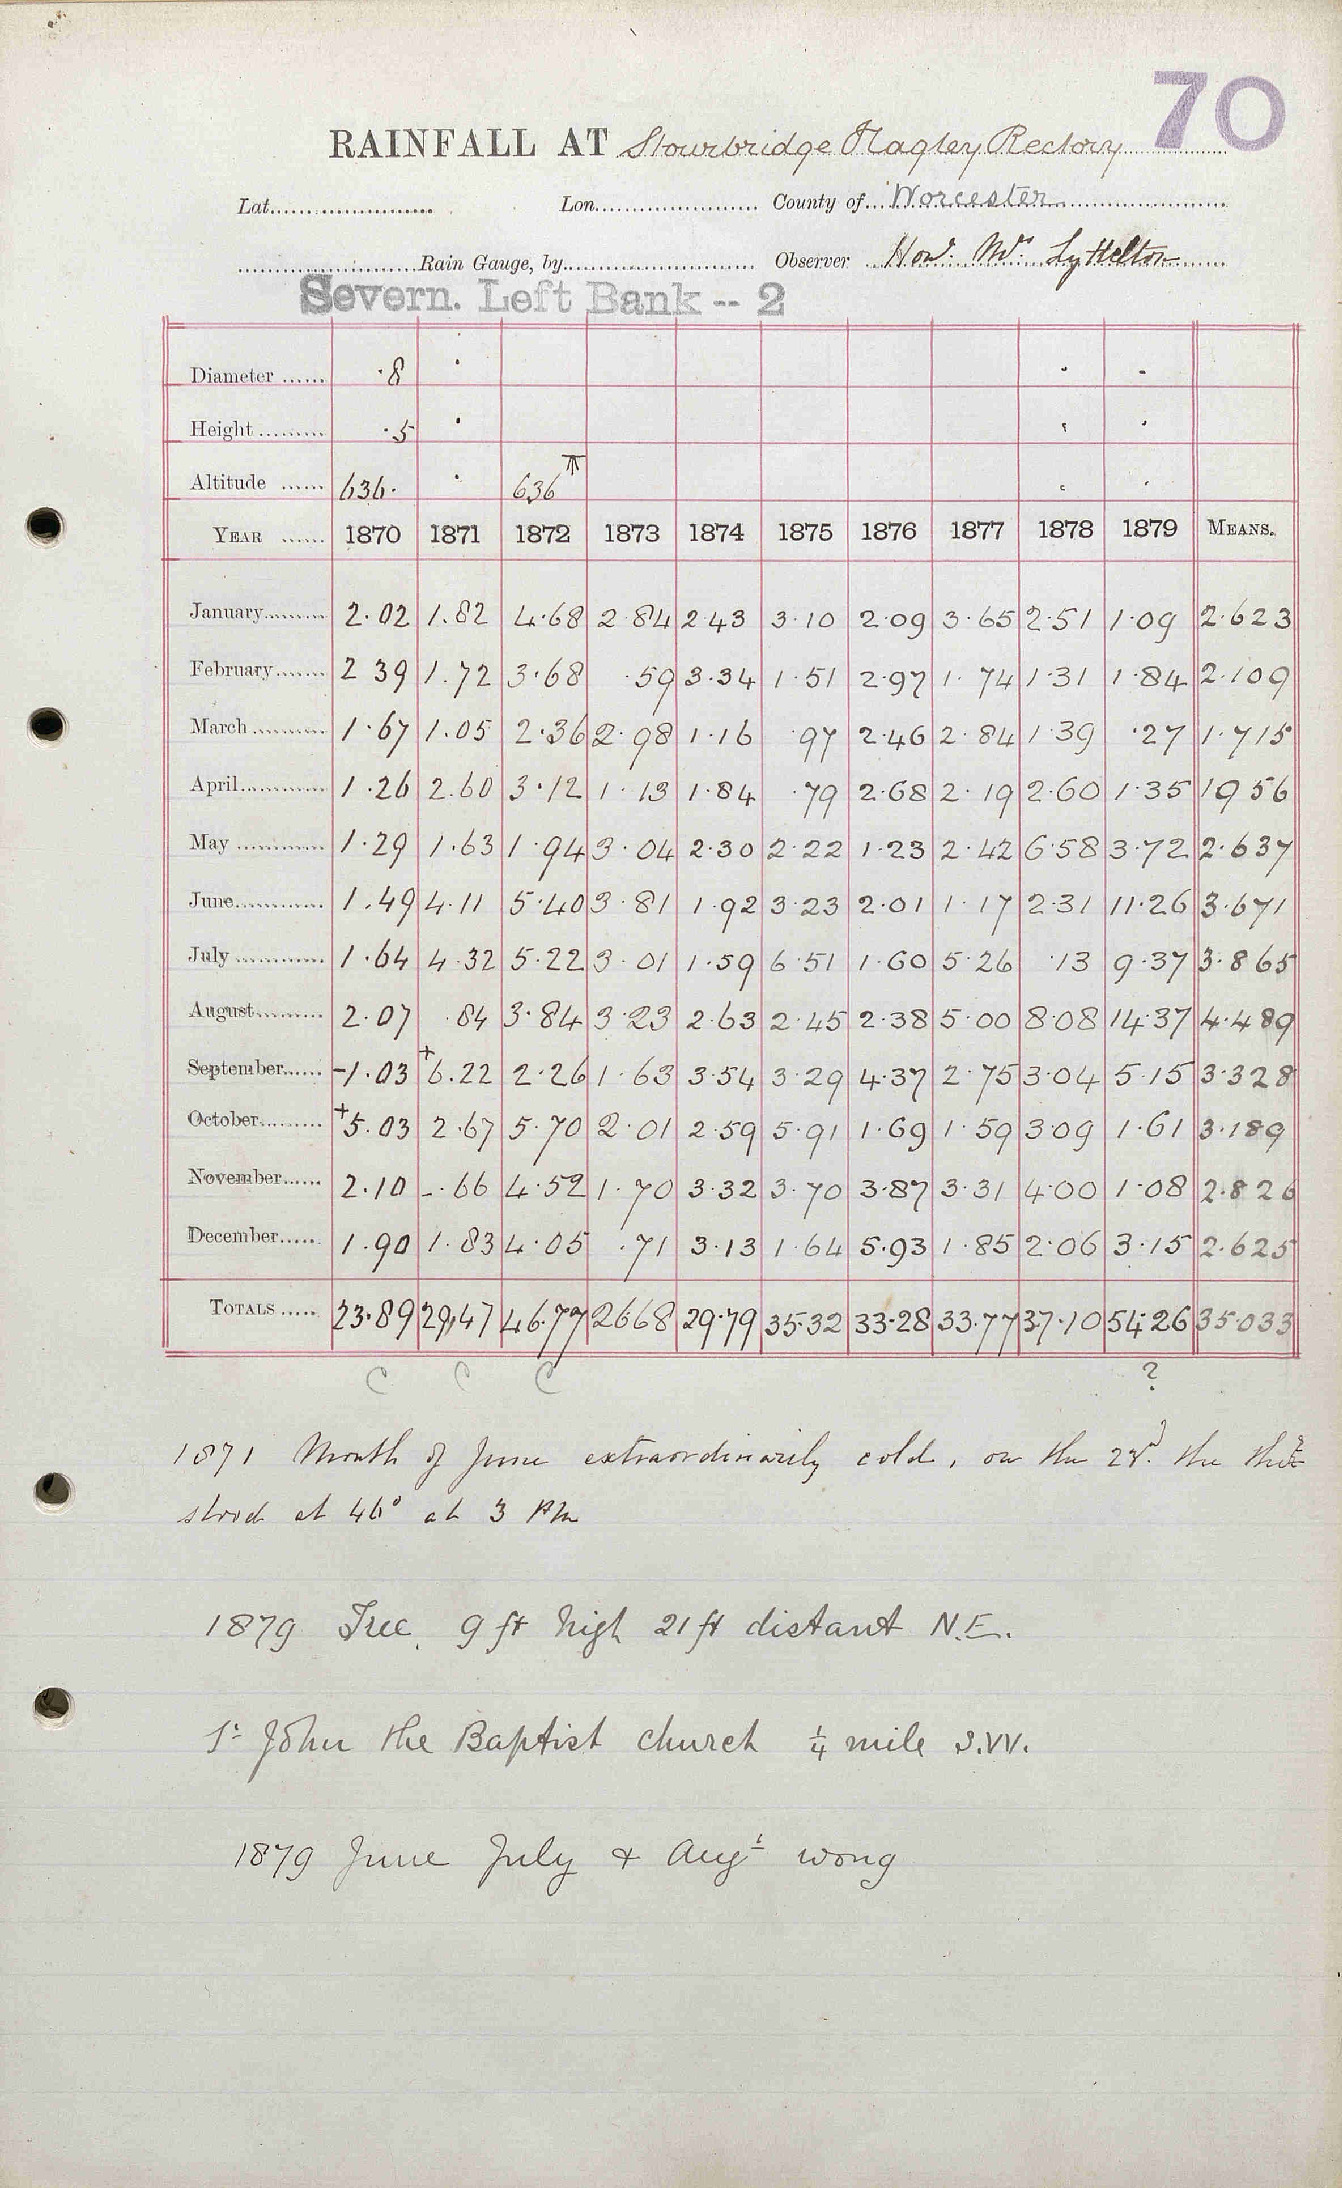 70
RAINFALL AT Stourbridge Hagley Rectory
Lat. Lon. County of Worcester
Rain Gauge, by Observer Hon. Mrs Lyttelton
Severn. Left Bank -- 2
Diameter ...... ·8
Height ......... ·5
Altitude ...... 636. 636
YEAR ...... 1870 1871 1872 1873 1874 1875 1876 1877 1878 1879 MEANS.
January 2.02 1.82 4.68 2 84 2 43 3.10 2.09 3.65 2.51 1.09 2.623
February 2 39 1.72 3.68 .59 3.34 1.51 2.97 1.74 1.31 1.84 2.109
March 1.67 1.05 2.36 2.98 1.16 .97 2.46 2.84 1.39 .27 1.715
April 1.26 2.60 3.12 1.13 1.84 .79 2.68 2.19 2.60 1.35 1956
May 1.29 1.63 1.94 3.04 2.30 2.22 1.23 2.42 6.58 3.72 2.637
June 1.49 4.11 5.40 3.81 1.92 3.23 2.01 1.17 2.31 11.26 3.671
July 1.64 4.32 5.22 3.01 1.59 6.51 1.60 5.26 .13 9.37 3.865
August 2.07 .84 3.84 3.23 2.63 2.45 2.38 5.00 8.08 14.37 4.489
September -1.03 +6.22 2.26 1.63 3.54 3.29 4.37 2.75 3.04 5.15 3.328
October +5.03 2.67 5.70 2.01 2.59 5.91 1.69 1.59 3.09 1.61 3.189
November 2.10 -.66 4.52 1.70 3.32 3.70 3.87 3.31 4.00 1.08 2.826
December 1.90 1.83 4.05 .71 3.13 1.64 5.93 1.85 2.06 3.15 2.625
TOTALS 23.89 29.47 46.77 2668 29.79 35.32 33.28 33.77 37.10 54.26 35.033
C C C ?
1871 Month of June extraordinarily cold, on the the
stood at 46° at 3 PM
1879 Tree 9 ft high 21 ft distant N.E.
St John the Baptist church ¼ mile S.W.
1879 June July & Augt wrong